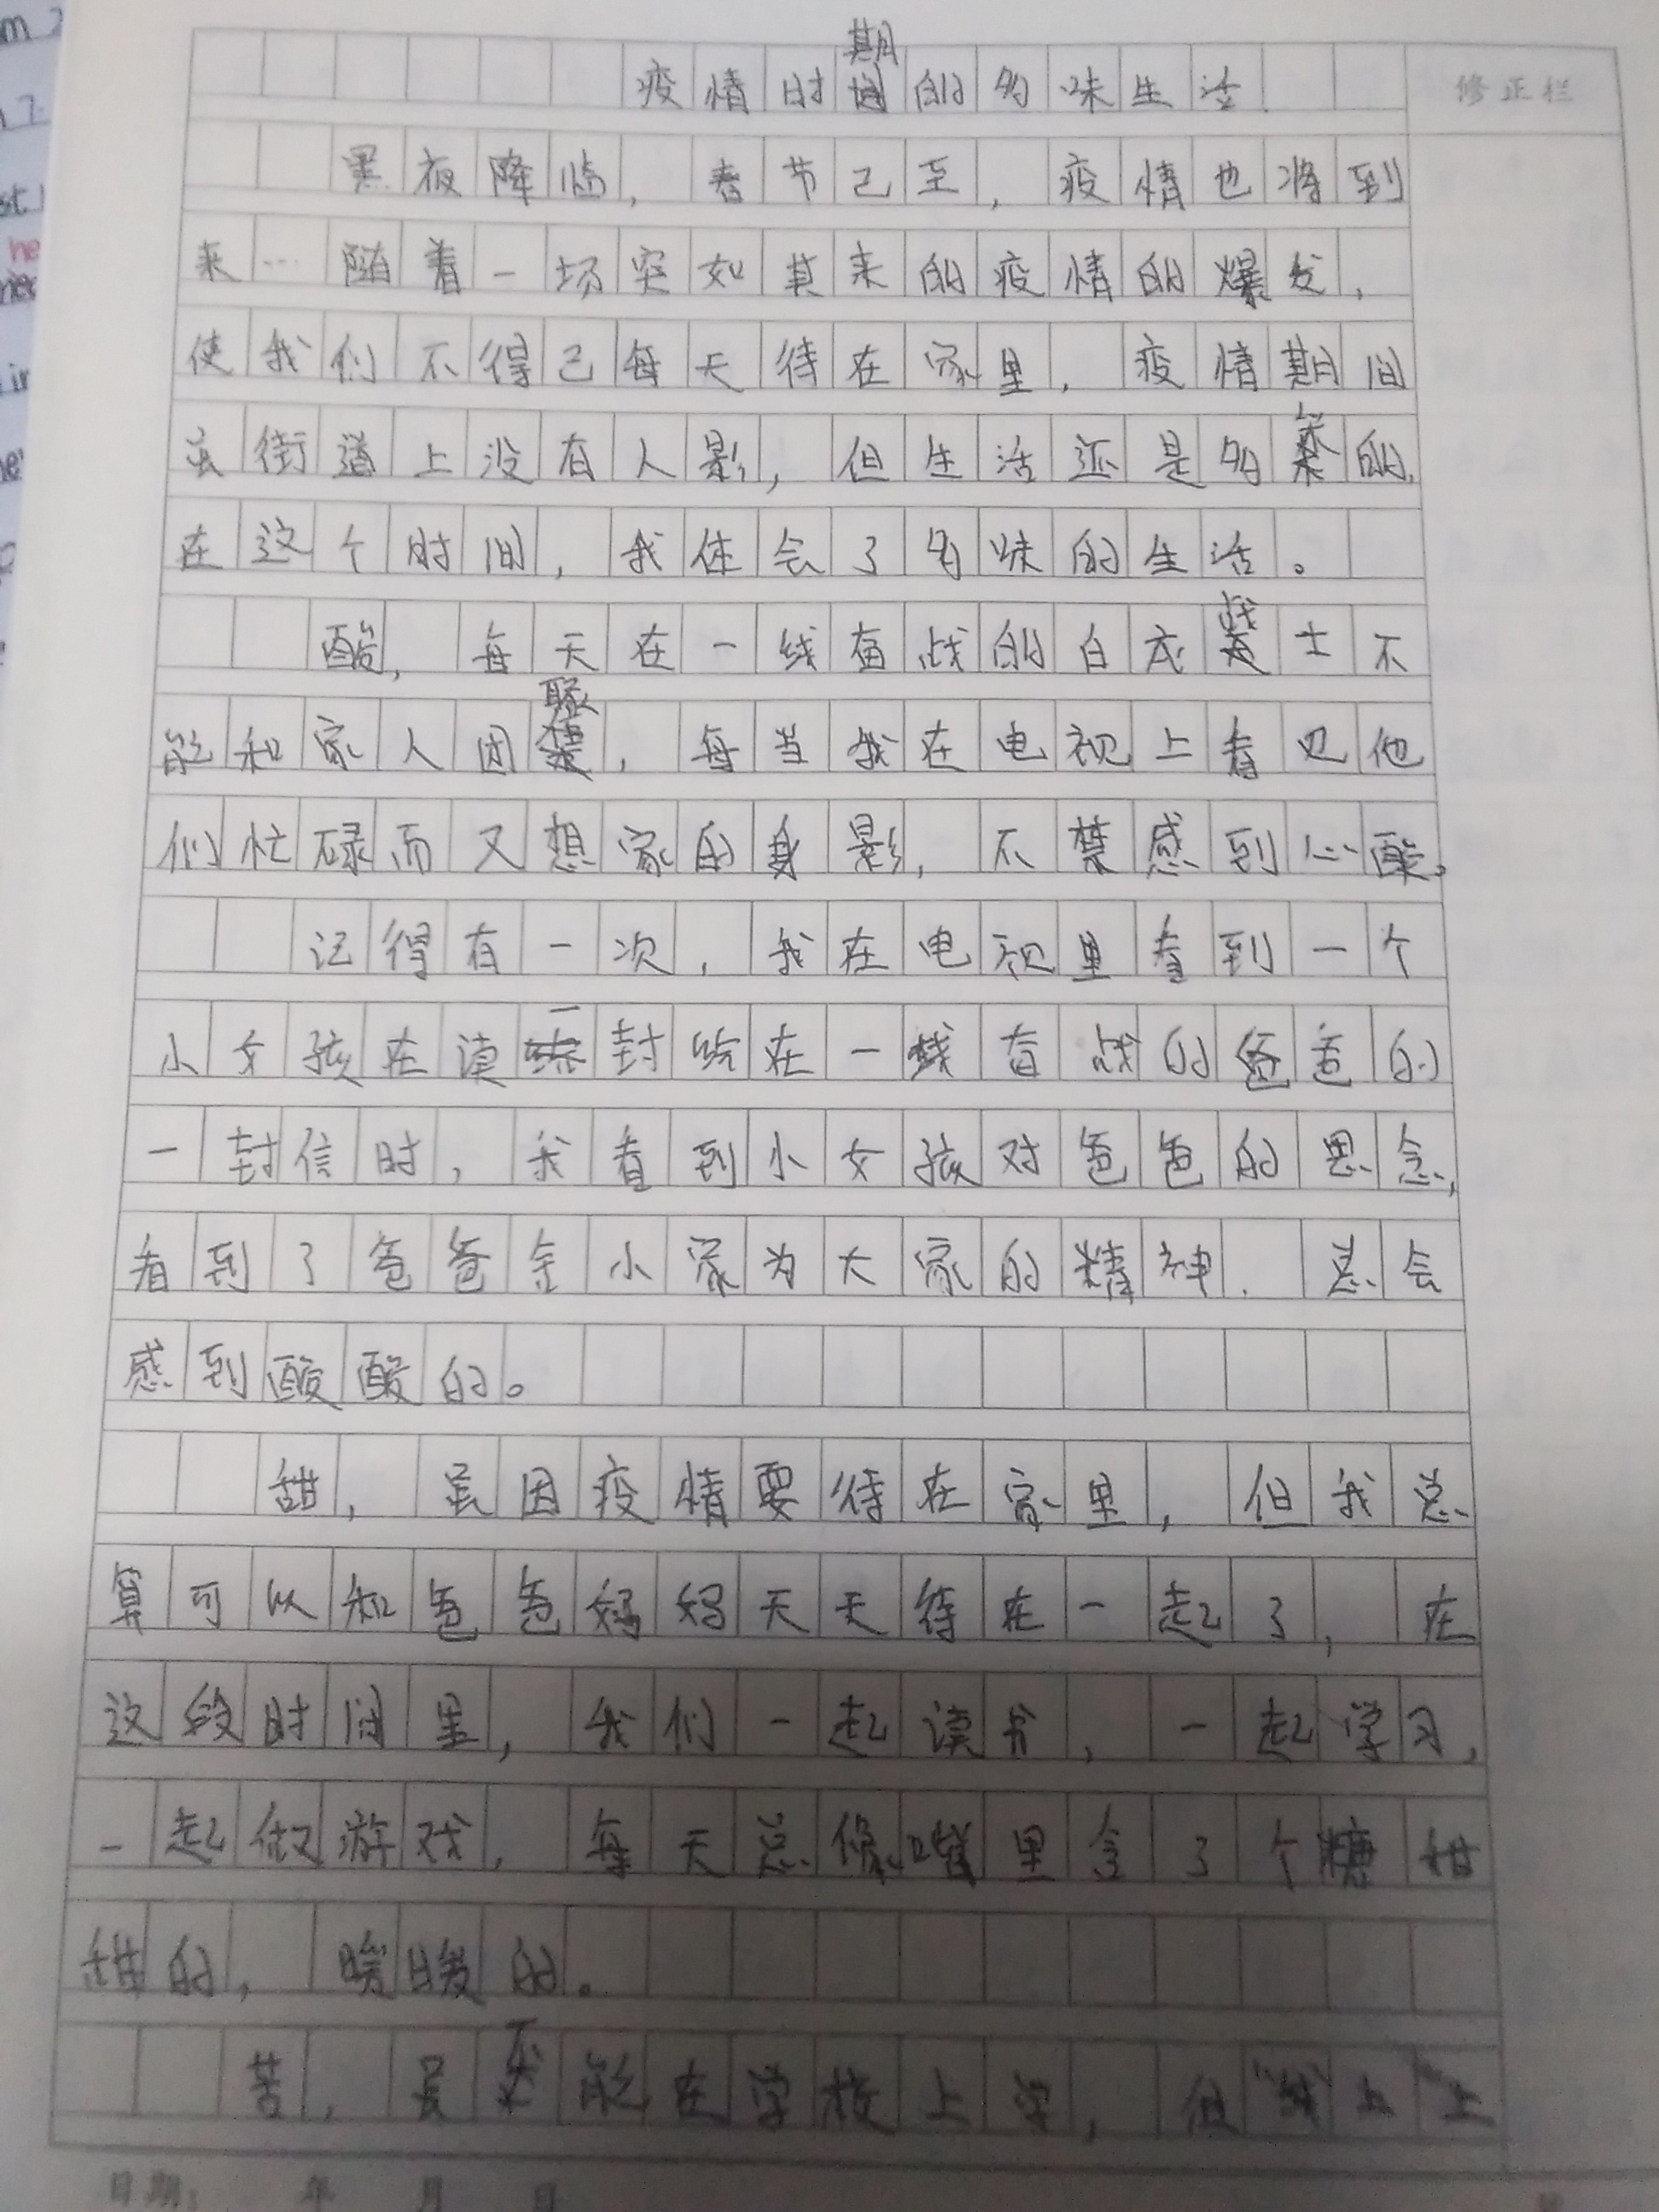 疫情时期的多味生活
修正栏
黑夜降临，春节已至，疫情也将到
来…随着一场突如其来的疫情的爆发，
使我们不得已每天待在家里，疫情期间
虽街道上没有人影，但生活还是多彩的，
在这个时间，我体会了多味的生活。
酸，每天在一线奋战的白衣战士不
能和家人团聚，每当我在电视上看见他
们忙碌而又想家的身影，不禁感到心酸。
记得有一次，我在电视里看到一个
小女孩在读一封给在一线奋战的爸爸的
一封信时，我看到小女孩对爸爸的思念，
看到了爸爸舍小家为大家的精神，总会
感到酸酸的。
甜，虽因疫情要待在家里，但我总
算可以和爸爸妈妈天天待在一起了，在
这段时间里，我们一起读书，一起学习，
一起做游戏，每天总像嘴里含了个糖甜
甜的，暖暖的。
苦，虽不能在学校上学，但"线上"上
日期： 年 月 日